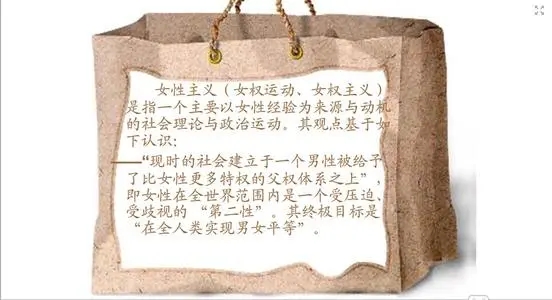 女性主义（女权运动、女权主义）
是指一个主要以女性经验为来源与动机
的社会理论与政治运动。其观点基于如
下认识：
——“现时的社会建立于一个男性被给予
了比女性更多特权的父权体系之上”，
即女性在全世界范围内是一个受压迫、
受歧视的 “第二性”。其终极目标是
“在全人类实现男女平等”。